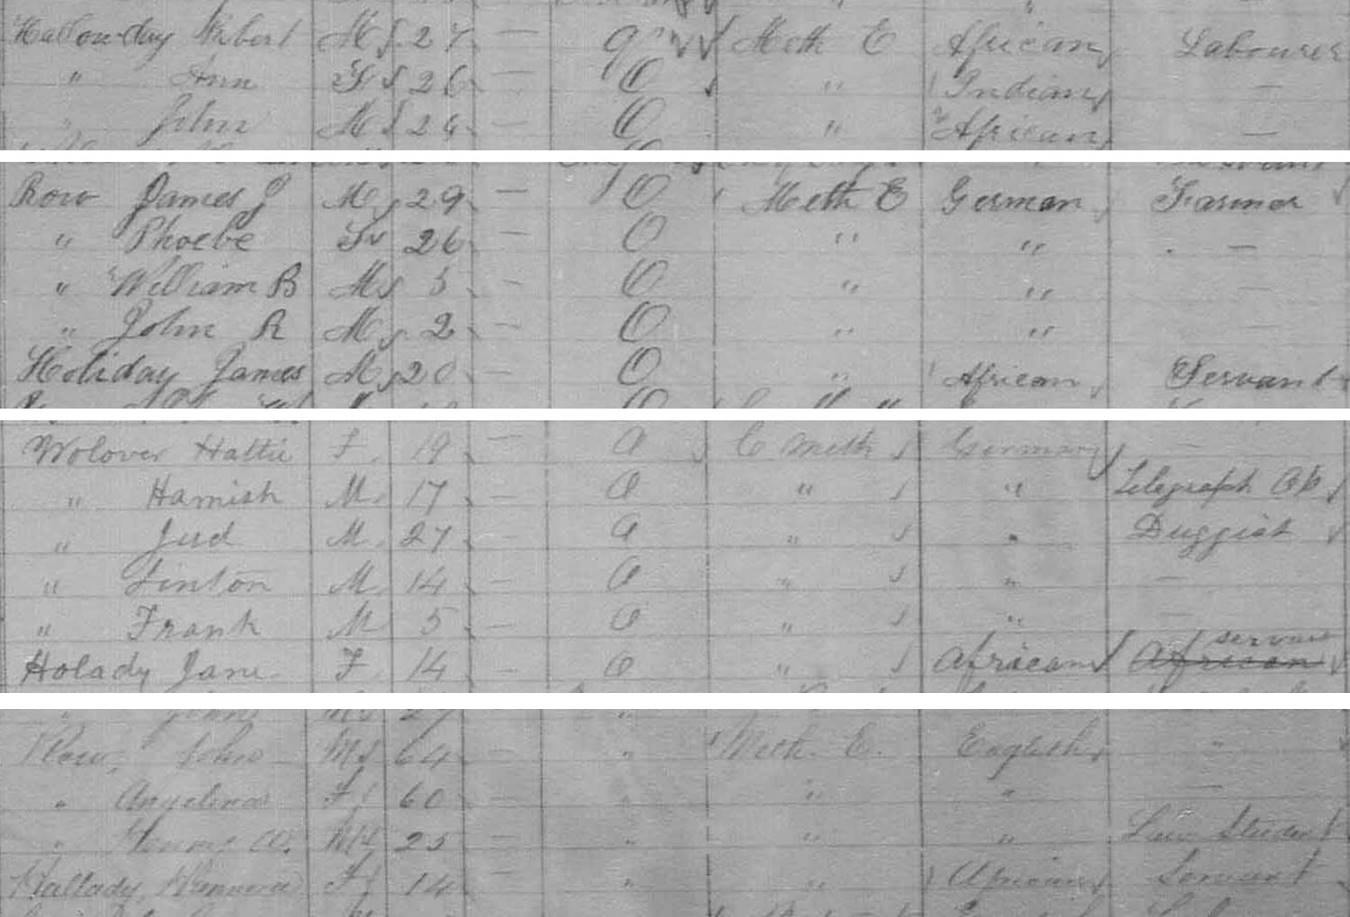 Halliday Robert M 27 — O Meth E African Labourer
" Ann F 26 — O " Indian —
" John M 24 O " African —
Row James J M 29 — O Meth E German Farmer
" Phoebe F 26 — O " " —
" William B M 5 — O " " —
" John R M 2 — O " " —
Holiday James M 20 — O " African Servant
Wolover Hattie F 19 — O C Meth German —
" Hamish M 17 — O " " Telegraph Op
" Jud M 27 — O " " Duggist
" Linton M 14 — O " " —
" Frank M 5 — O " " —
servant
Holady Jane F 14 — O " African African
John 27 "
Row, John M 64 — " Meth. E. English "
" Angelina F 60 — " " " —
" M 25 — " " " Law Student
Hallady, F 14 — " " African Servant